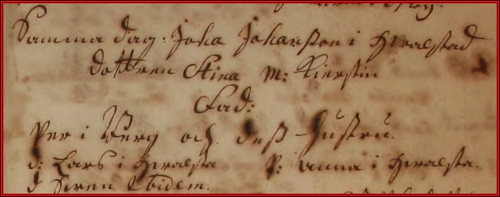 Samma dag: Joha Joharsson i Hvalstad
dottren Stina M: Kierstin
Fad:
Per i Berg och deß hustru.
d: Lars i Hvalsta P: Anna i Hvalsta.
d Sven Ibidem.